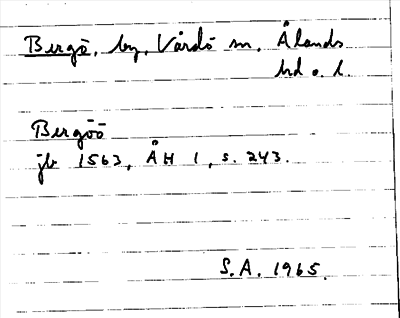 Bergö, by, Vårdö sn, Ålands
hd o. l.
Bergöö
jb 1563, ÅH 1, s. 243.
S.A. 1965.